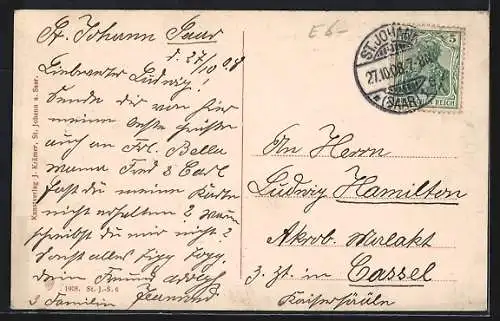 St. Johann Saar
d. 27/10 08
Liebwerter Ludwig!
Sende dir von hier
meine beste Grüße
auch an Frl. Bella
Mama Fred & Carl
hast du meine Karte
nicht erhalten? Warum
schreibst du mir nicht?
Sonst alles
dein Freund Adolf
& Familie
Kunstverlag J. Krämer, St. Johann a. Saar.
1908. St. J.-S. 6
E 6-
ST. JOHANN
27.10.08.7-8
(SAAR)
5
REICH
An Herrn
Ludwig Hamilton
Akrob.
z. Zt. in Cassel
Kaisersäule